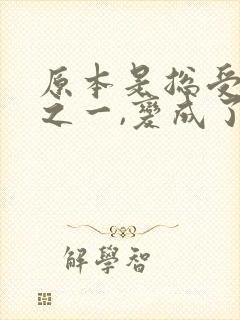 原本是總受
之一,變成了
解學智